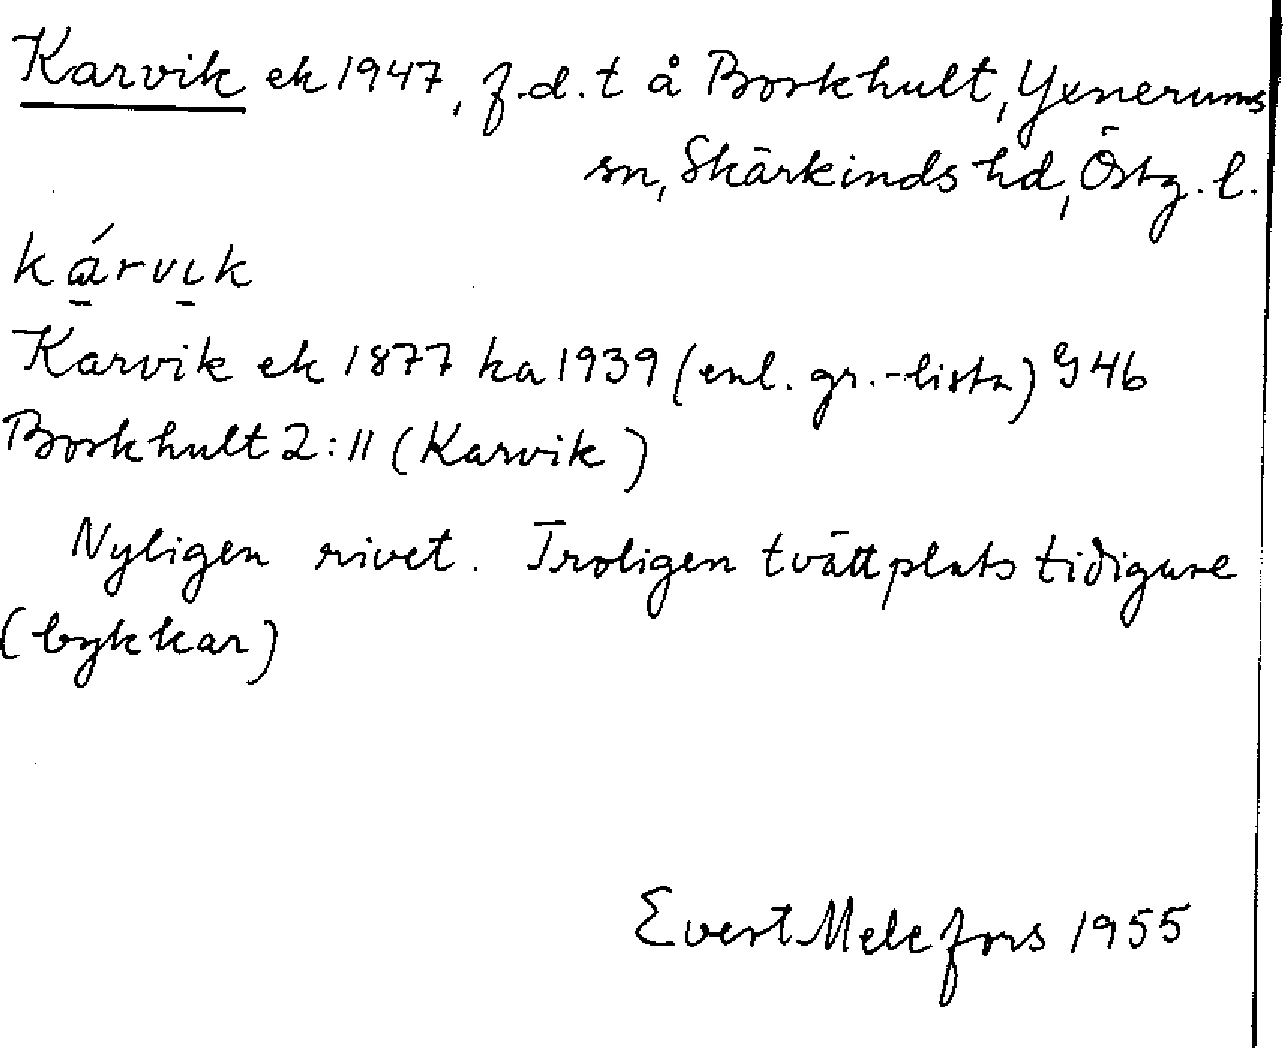 Karvik ek 1947, f.d.t å Borkhult, Yxnerums
sn, Skärkinds hd, Östg. l.
kárvık
Karvik ek 1877 ka 1939 (enl. gr.-lista) G 46
Borkhult 2:11 (Karvik)
Nyligen rivet. Troligen tvättplats tidigare
(bykkar)
Evert Melefors 1955